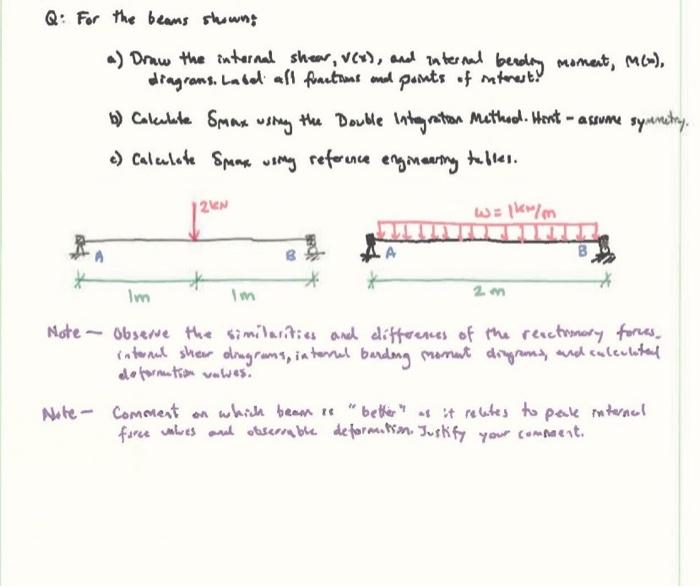 Q: For the beams shown:
a) Draw the internal shear, V(x), and internal bending moment, M(x),
diagrams. Label all functions and points of interest.
b) Calculate δmax using the Double Integration Method. Hint - assume symmetry.
c) Calculate δmax using reference engineering tables.
2kN
w = 1kN/m
A
B
A
B
1m
1m
2m
Note - Observe the similarities and differences of the reactionary forces,
internal shear diagrams, internal bending moment diagrams, and calculated
deformation values.
Note - Comment on which beam is "better" as it relates to peak internal
force values and observable deformation. Justify your comment.